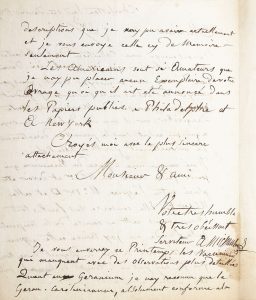 descriptions que je n'ay pu avoir actuellement
et je vous envoye celle cy de memoire
seulement
Les Americains sont si Amateurs que
je n'ay pu placer aucun Exemplaire de votre
ouvrage quoi qu'il ait ete annoncé dans
les Papiers publics a Philadelphie et
New York
Croyés moi avec le plus sincere
attachement
Monsieur & ami
Votre tres humble
& tres obeissant
Serviteur A. Michaux
Je vous enverrai ce Printemps les
qui manquent avec des observations plus detaillées
Quant au Geranium je n'ay reconnu que le
Geran. Carolinianum, absolument conforme a la